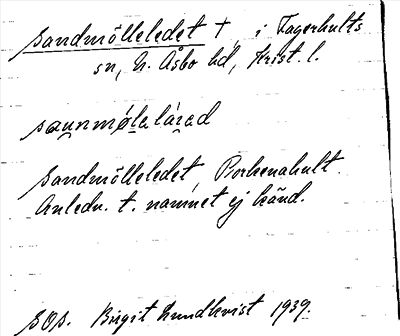 Sandmölleledet † i Fagerhults
sn, N. Åsbo hd, Krist. l.
saunmølalárad
Sandmölleledet, Porkenahult.
Anledn. t. namnet ej känd.
SOS. Birgit Lundkvist 1939.